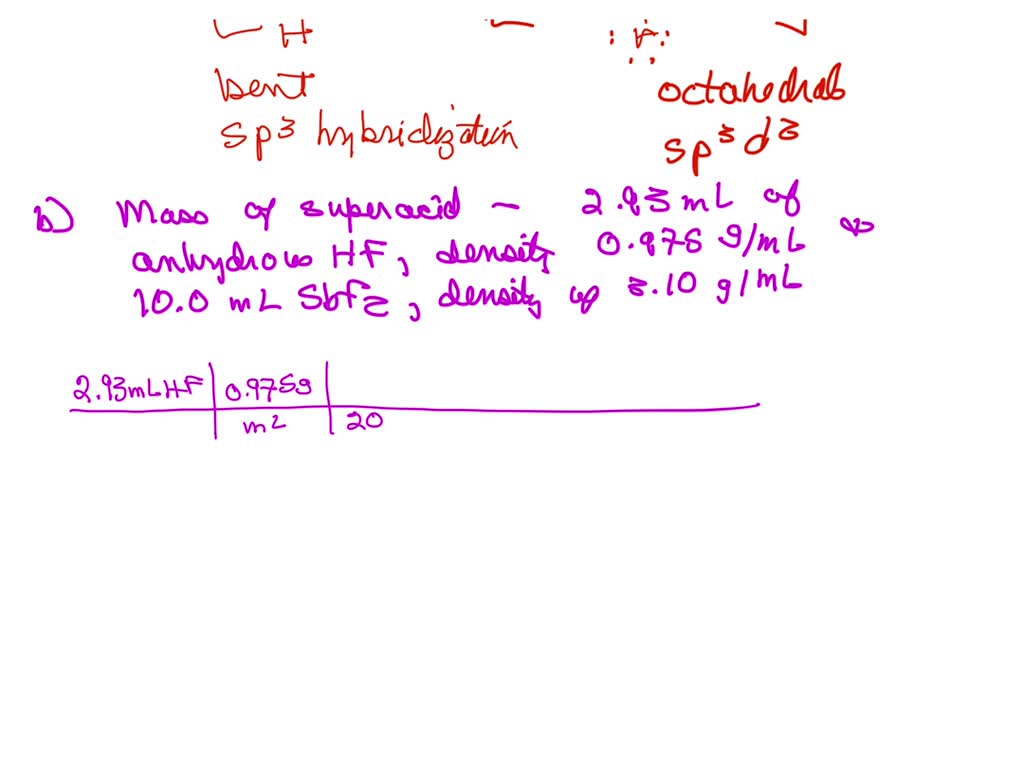 H :F:
bent octahedral
sp3 hybridization sp3d2
b) Mass of superacid - 2.93 mL of
anhydrous HF, density 0.975 g/mL &
10.0 mL SbF5, density of 3.10 g/mL
2.93mL HF 0.975g
mL 20